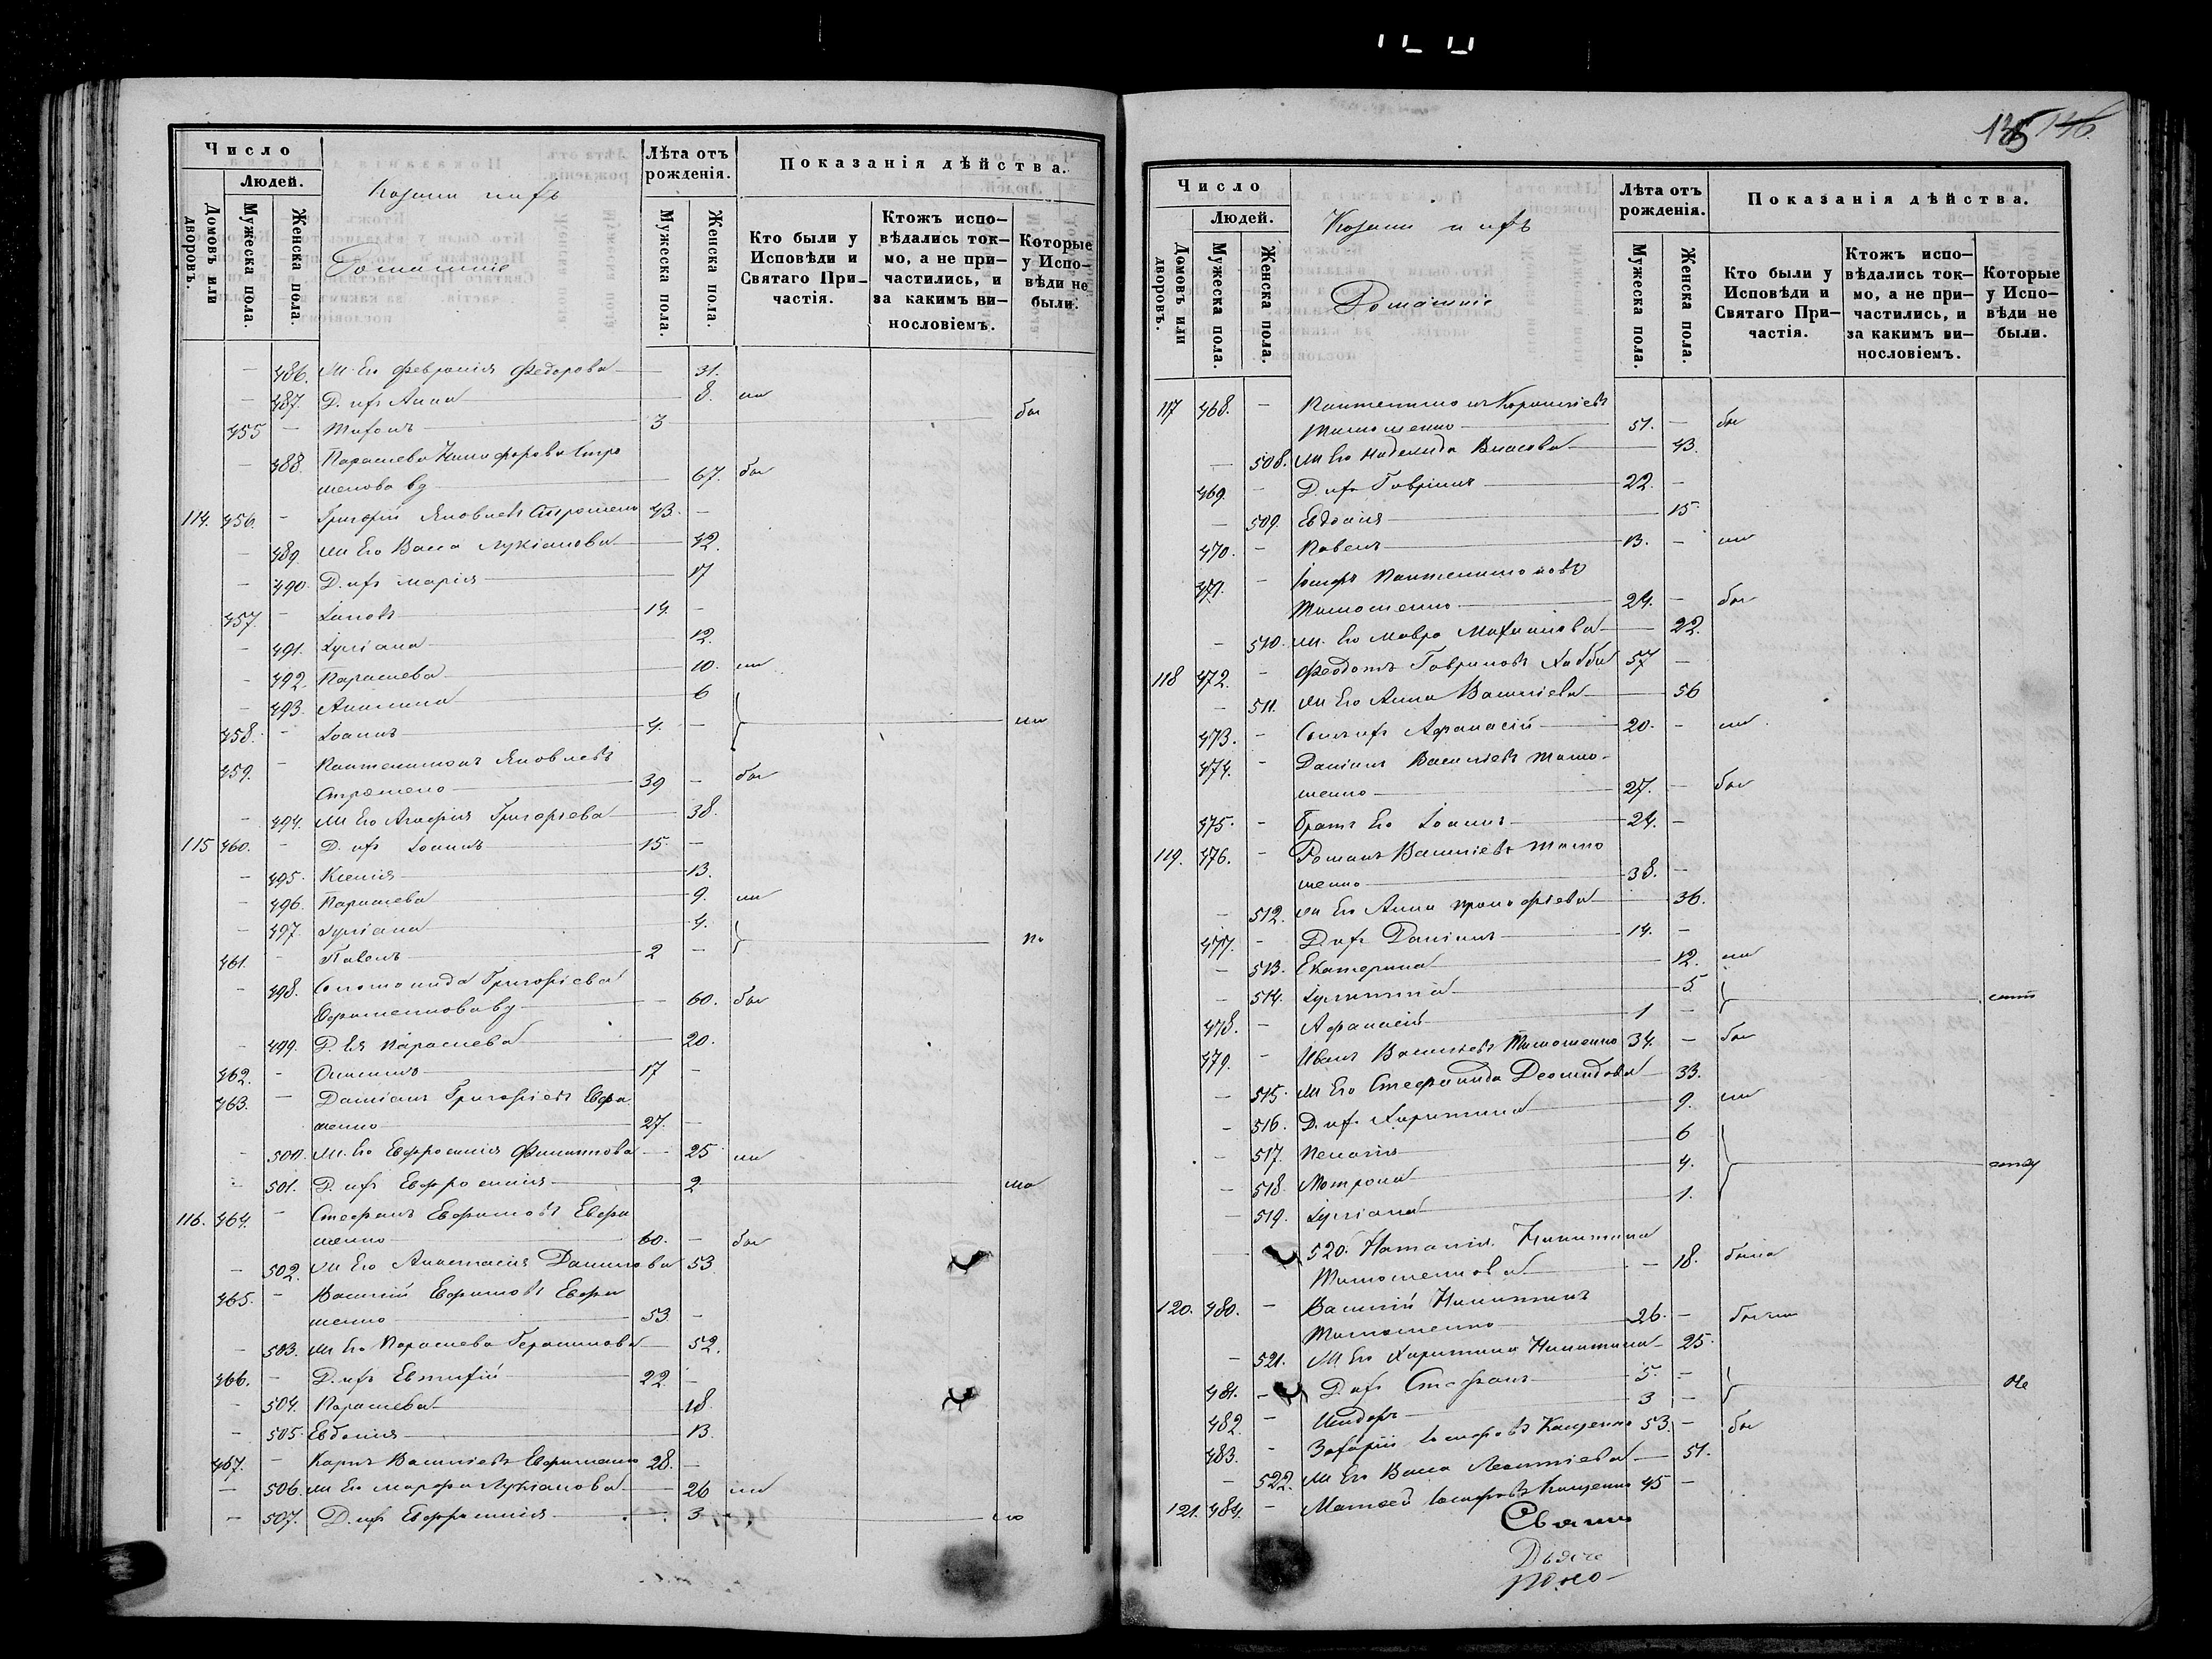 135 146.
Число
Людей.
Домовъ или дворовъ.
Мужеска пола.
Женска пола.
Козаки и ихъ
Домашніе
Лѣта отъ рожденія.
Мужеска пола.
Женска пола.
Показанія дѣйства.
Кто были у Исповѣди и Святаго Причастія.
Ктожъ исповѣдались токмо, а не причастились, и за какимъ винословіемъ.
Которые у Исповѣди не были.
486. Ж. Его Феврония Федорова 31.
487. Д. ихъ Анна 8.
455 3
488. Параскева Никифорова
вд 67. бы
114. 456. Григорій Яковлевъ 43.
489. Ж Его Васса Лукіанова 42.
490. Д. ихъ Марія 17
457. Іаковъ 14.
491. Іуліана 12.
492. Параскева 10.
493. 6
458. Іоаннъ 4.
459. Пантелимонъ Яковлевъ
39 бы
494. Ж Его Агафія Григорьева 38.
115 460. Д. ихъ Іоаннъ 15.
495. Ксенія 13.
496. Параскева 9.
497. Іуліана 4.
461. Павелъ 2
498. Соломонида Григоріева
вд 60. бы
499. Д. Ея Параскева 20.
462. 17
463. Даміанъ Григоріевъ Ефри
менко 27.
500. Ж. Его Евфросинія Филиппова 25
501. Д. ихъ Евфросинія 2
116. 464. Стефанъ Ефримовъ Ефри
менко 60. бы
502. Ж Его Анастасія Данилова 53
465. Василій Ефримовъ Ефри
менко 53.
503. Ж Его Параскева Герасимова 52.
466. Д. ихъ Евтихій 22
504. Параскева 18.
505. Евдокія 13.
467. Карпъ Васильевъ Ефрименко 28.
506. Ж Его Марфа Лукіанова 26
507. Д. ихъ Евфросинія 3
Число
Людей.
Домовъ или дворовъ.
Мужеска пола.
Женска пола.
Козаки и ихъ
Домашніе
Лѣта отъ рожденія.
Мужеска пола.
Женска пола.
Показанія дѣйства.
Кто были у Исповѣди и Святаго Причастія.
Ктожъ исповѣдались токмо, а не причастились, и за какимъ винословіемъ.
Которые у Исповѣди не были.
117 468. Пантелимонъ Корниліевъ
Тимошенко 51. бы
508. Ж Его Надежда Власова 43.
469. Д. ихъ Гавріилъ 22.
509. Евдокія 15
470. Павелъ 13.
471. Іосифъ Пантелимоновъ
Тимошенко 24. бы
510. Ж. Его Мавра Михаилова 22.
118 472. Феодотъ Гавриловъ 57
511. Ж Его Анна Васильева 56
473. Сынъ ихъ Афанасій 20.
474. Даніилъ Васильевъ Тимо
шенко 27. бы
475. Братъ Его Іоаннъ 24.
119. 476. Романъ Васильевъ Тимо
шенко 38.
512. Ж Его Анна Прокофіева 36.
477. Д. ихъ Даніилъ 14.
513. Екатерина 12.
514. 5
478. Афанасій 1
479. Иванъ Васильевъ Тимошенко 34. бы
515. Ж Его Стефанида Деомидова 33.
516. Д. ихъ Харитина 9.
517. Пелагія 6
518. Мотрона 4.
519. Іуліана 1.
520. Наталія Никитина
Тимошенкова 18. была
120. 480. Василій Никитинъ
Тимошенко 26. были
521. Ж Его Харитина Никитина 25.
481. Д. ихъ Стефанъ 5. Не
482. Исидоръ 3
483. Захарій Іосифовъ Кащенко 53. бы
522. Ж Его Васса Леонтіева 51.
121. 484. Матвей Іосифовъ Кащенко 45
Свящ